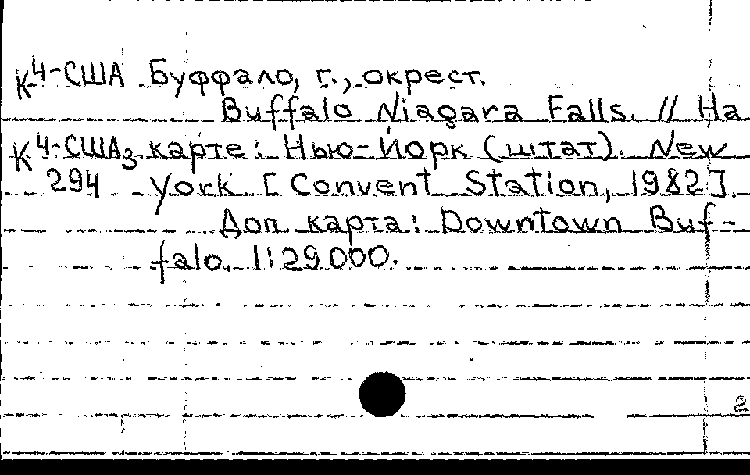 К4-США Буффало, г., окрест.
Buffalo Niagara Falls. // На
К4-США3 карте: Нью-Йорк (штат). New
294 York [Convent Station, 1982].
Доп. карта: Downtown Buf-
falo. 1:29000.
2